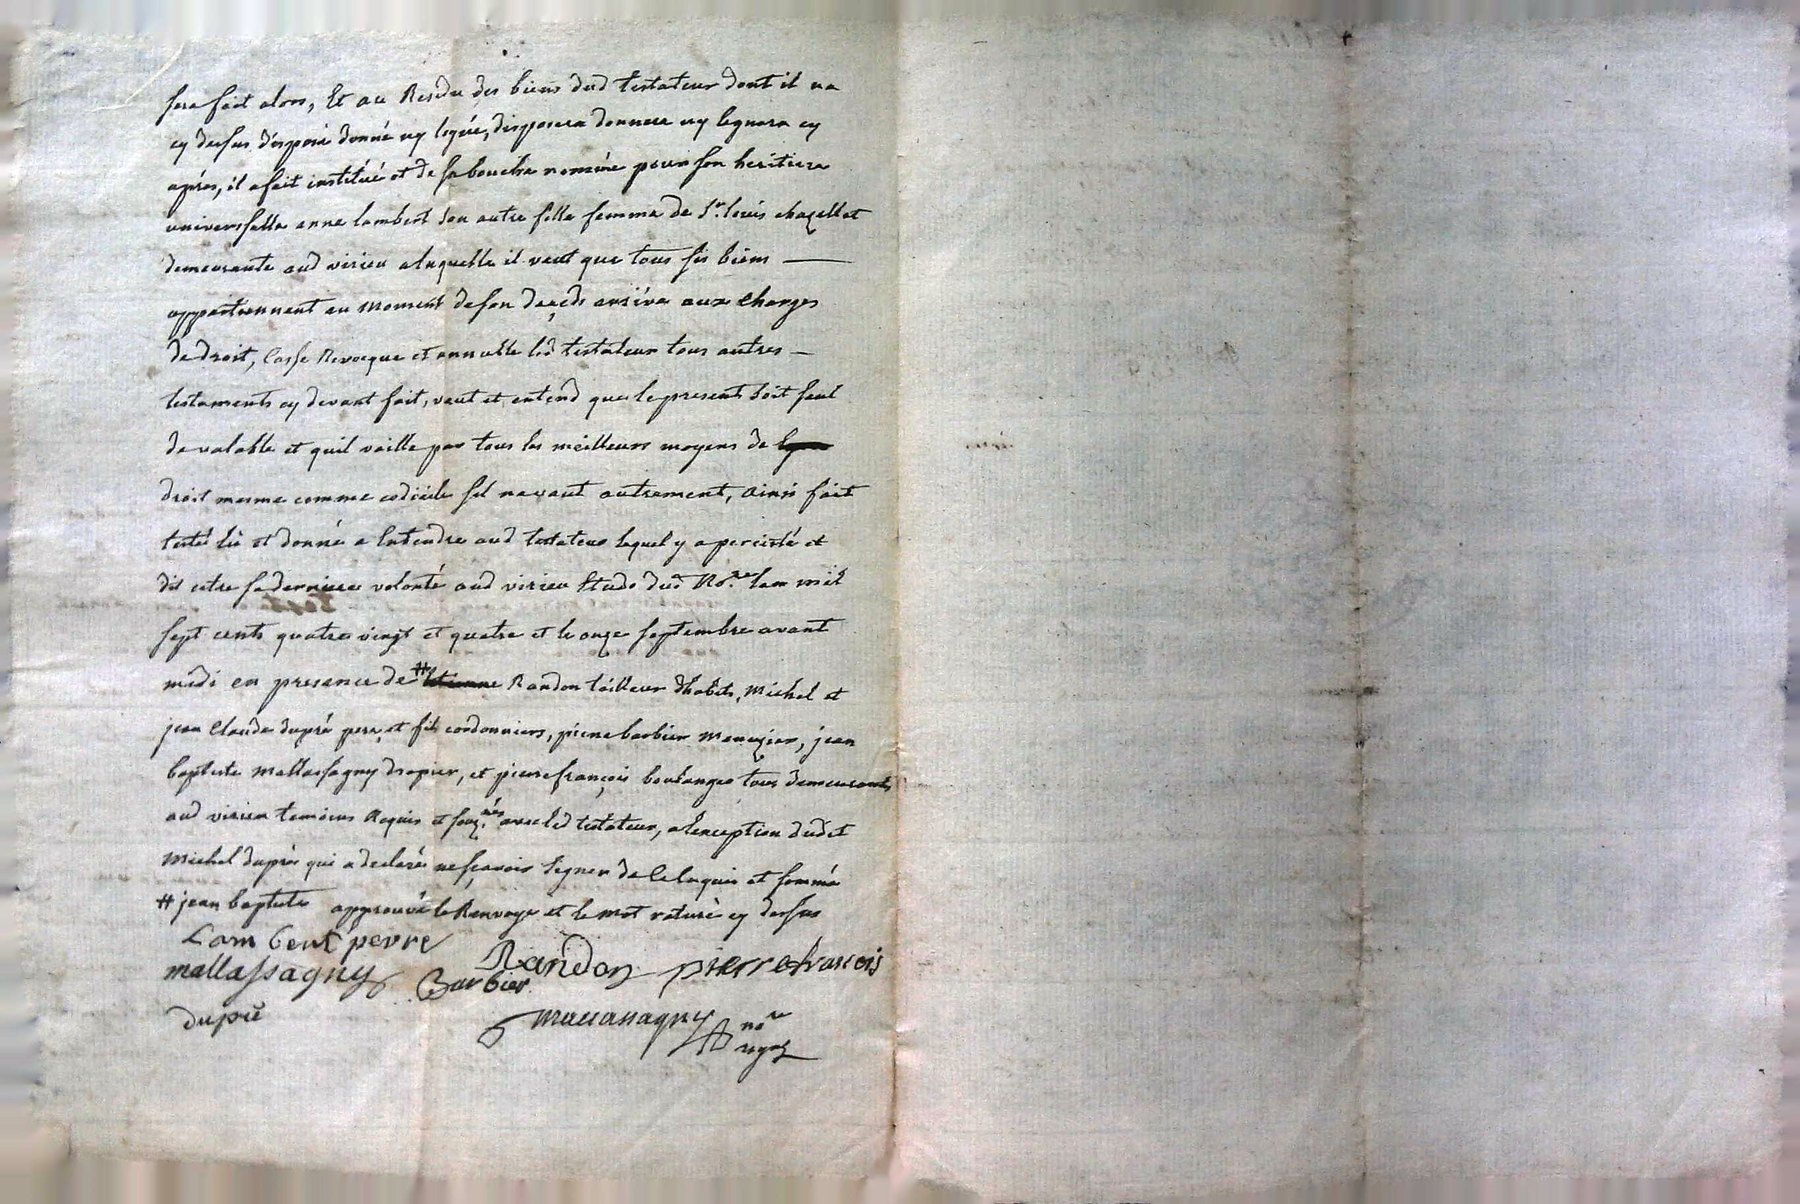 sera fait alors, Et au Residu des biens dud testateur dont il na
cy dessus disposé donné ny legué, disposera donnera ny leguera cy
aprés, il a fait institué et de sa bouche nommé pour son heritiere
universelle anne lambert son autre fille femme de Sr. louis chazellet
demeurante aud virieu a laquelle il veut que tous ses biens
appartiennent au moment de son deceds arrivé aux charges
de droit, Casse Revoque et annulle led testateur tous autres
testaments cy devant fait, veut et entend que le present soit seul
de valable et quil vaille par tous les meilleurs moyens de
droit mesme comme codicile sil ne vaut autrement, ainsi fait
testé lû et donné a Entendre aud testateur lequel y a percisté et
dit estre sa derniere volonté aud virieu Etude dud No.re lan mil
sept cents quatre vingt et quatre et le onze septembre avant
midi en presence de # Etienne Randon tailleur dhabits, Michel et
jean Claude dupré pere et fils cordonniers, pierre barbier Menuzier, jean
baptiste Mallassagny drapier, et pierre françois boulanger tous demeurants
aud virieu temoins Requis et souz.nés avec led testateur, a lexception dudit
Michel dupré qui a declaré ne sçavoir signer de Ce Enquis et sommé
# jean baptiste approuvé le Renvoye et le mot raturé cy dessus
Lambert peyre
Randon pierre francois
mallassagny Barbier
dupré
Mallassagny no.re